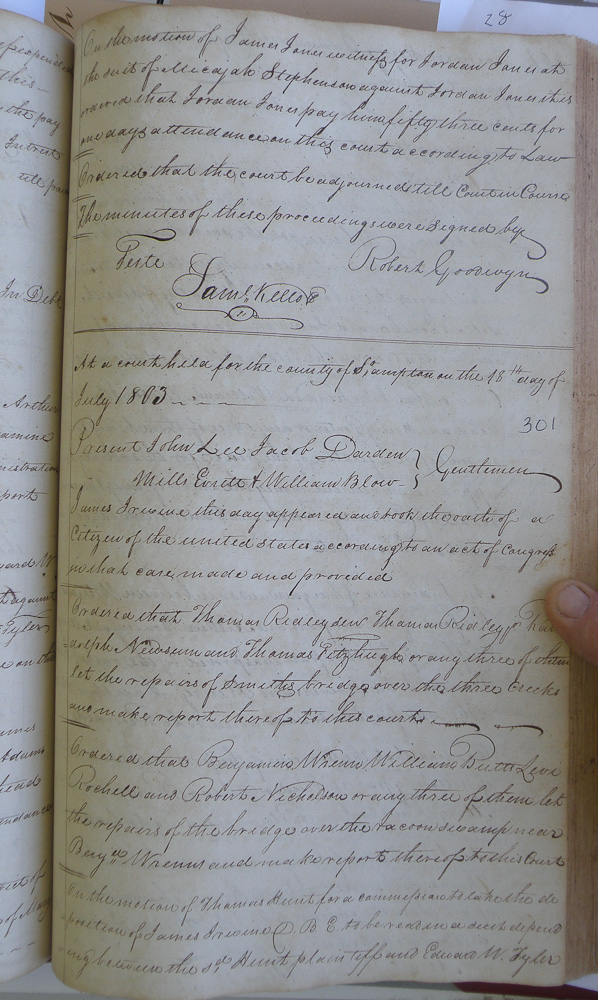 28
On the motion of James Jones witness for Jordan Jones at
the suit of Micajah Stephenson against Jordan Jones it is
ordered that Jordan Jones pay him fifty three cents for
one days attendance on this court according to Law
Ordered that the court be adjourned till Court in Course
The minutes of these proceedings were signed by
Teste Robert Goodwyn
Saml. Kello C
At a court held for the county of So,ampton on the 18th day of
July 1803
301
Present John Lee Jacob Darden Gentlemen
Mills Everitt & William Blow
James Irvine this day appeared and took the oath of a
Citizen of the united States according to an act of Congress
in that case made and provided
Ordered that Thomas Ridley senr Thomas Ridley jr
dolph Newsum and Thomas Fitzhugh or any three of them
let the repairs of Smiths bridge over the three Creeks
and make report thereof to this court
Ordered that Benjamin Wrenn William Butts Levi
Rochell and Robert Nicholson or any three of them let
the repairs of the bridge over the racoon swamp near
Benjn Wrenns and make report thereof to this Court
On the motion of Thomas Hunt for a commission to take the de
position of James Irvine D. B. E. to be read in a suit depend
ing between the sd. Hunt plaintiff and Edward W. Tyler
this
the pay
Interest
In Debt
Arthur
amine
nistration
port
against
Tyler
ames
Adams
head